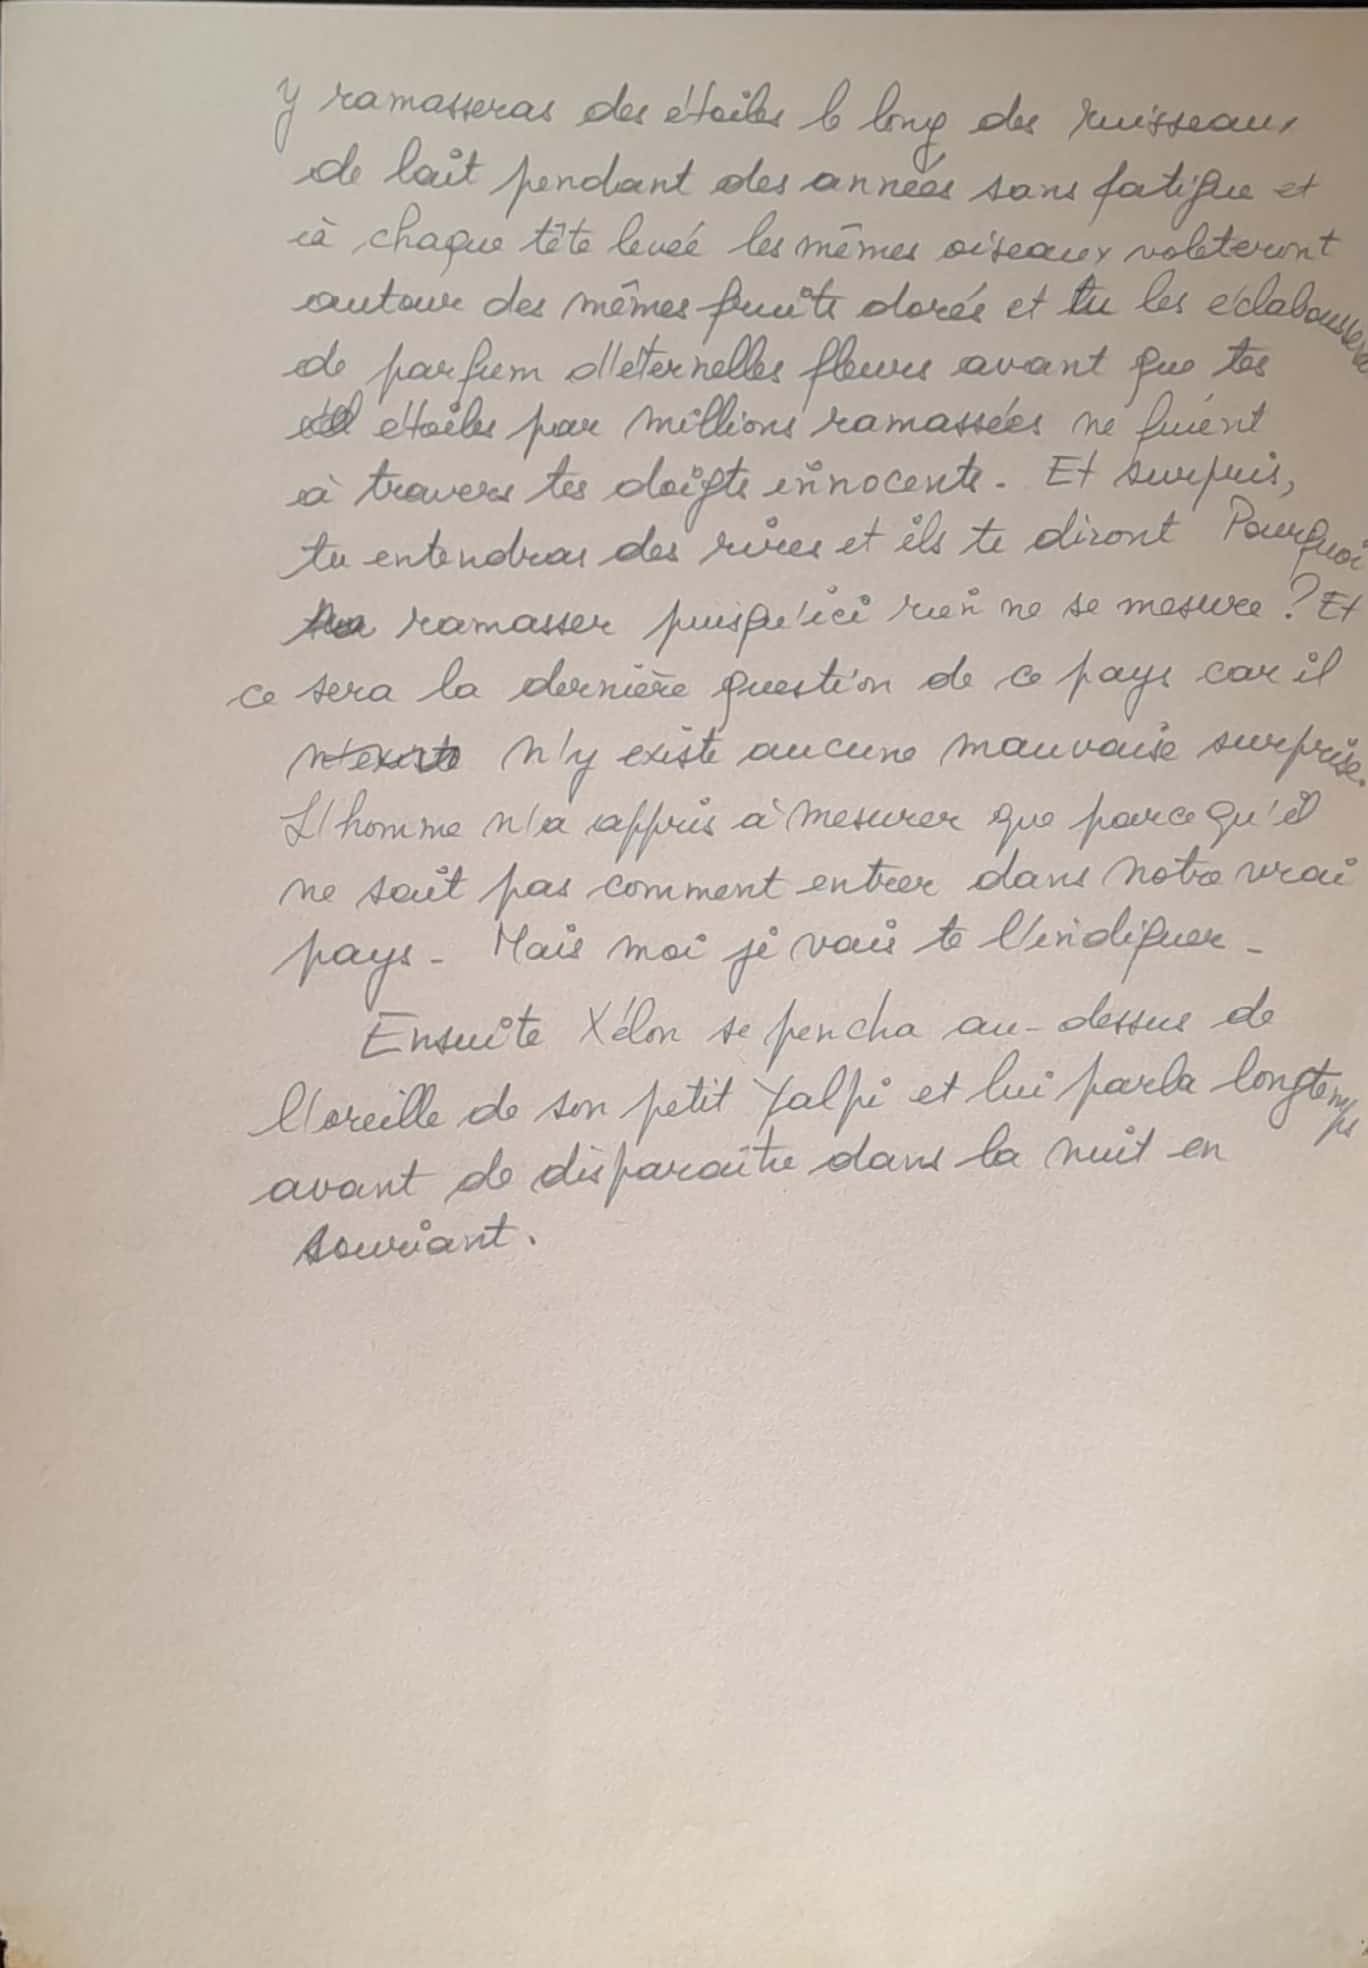 y ramasseras des étoiles le long des ruisseaux
de lait pendant des années sans fatigue et
à chaque tête levée les mêmes oiseaux voleteront
autour des mêmes fruits dorés et tu les
de parfum d'éternelles fleurs avant que tes
étoiles par millions ramassées ne fuient
à travers tes doigts innocents. Et surpris,
tu entendras des rires et ils te diront Pourquoi
ramasser puisqu'ici rien ne se mesure ? Et
ce sera la dernière question de ce pays car il
n'existe n'y existe aucune mauvaise surprise.
L'homme n'a appris à mesurer que parce qu'il
ne sait pas comment entrer dans notre vrai
pays. Mais moi je vais te l'indiquer.
Ensuite Xélon se pencha au-dessus de
l'oreille de son petit Yalpi et lui parla longtemps
avant de disparaître dans la nuit en
souriant.